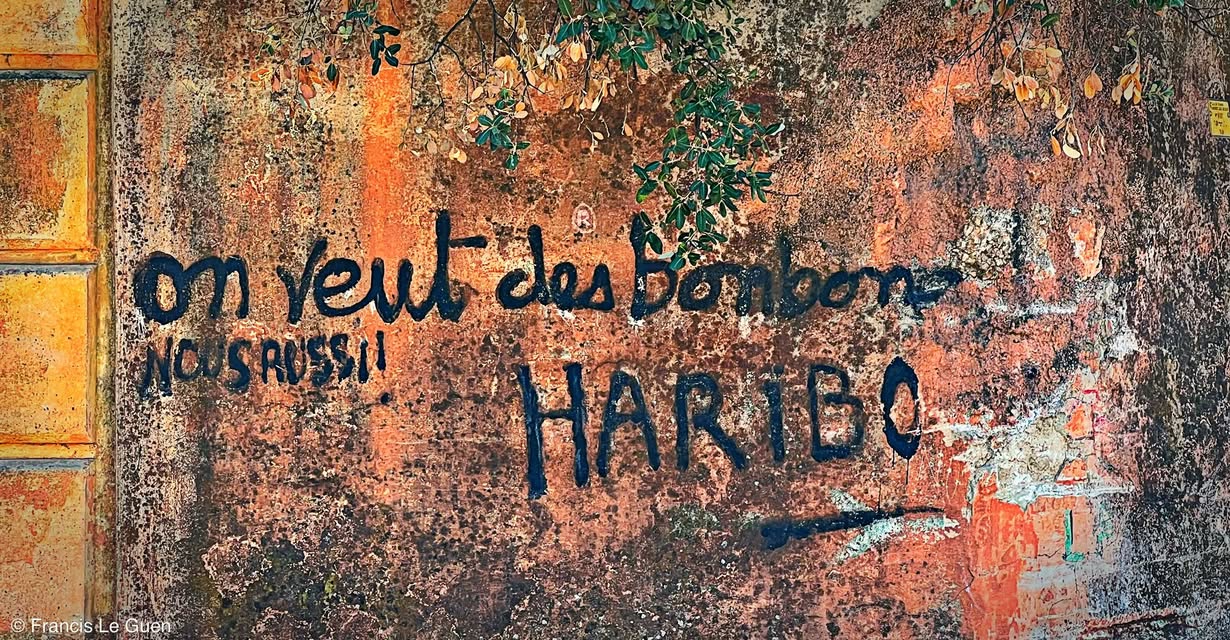 on veut des bonbons
NOUS AUSSi!
HARiBO
© Francis Le Guen